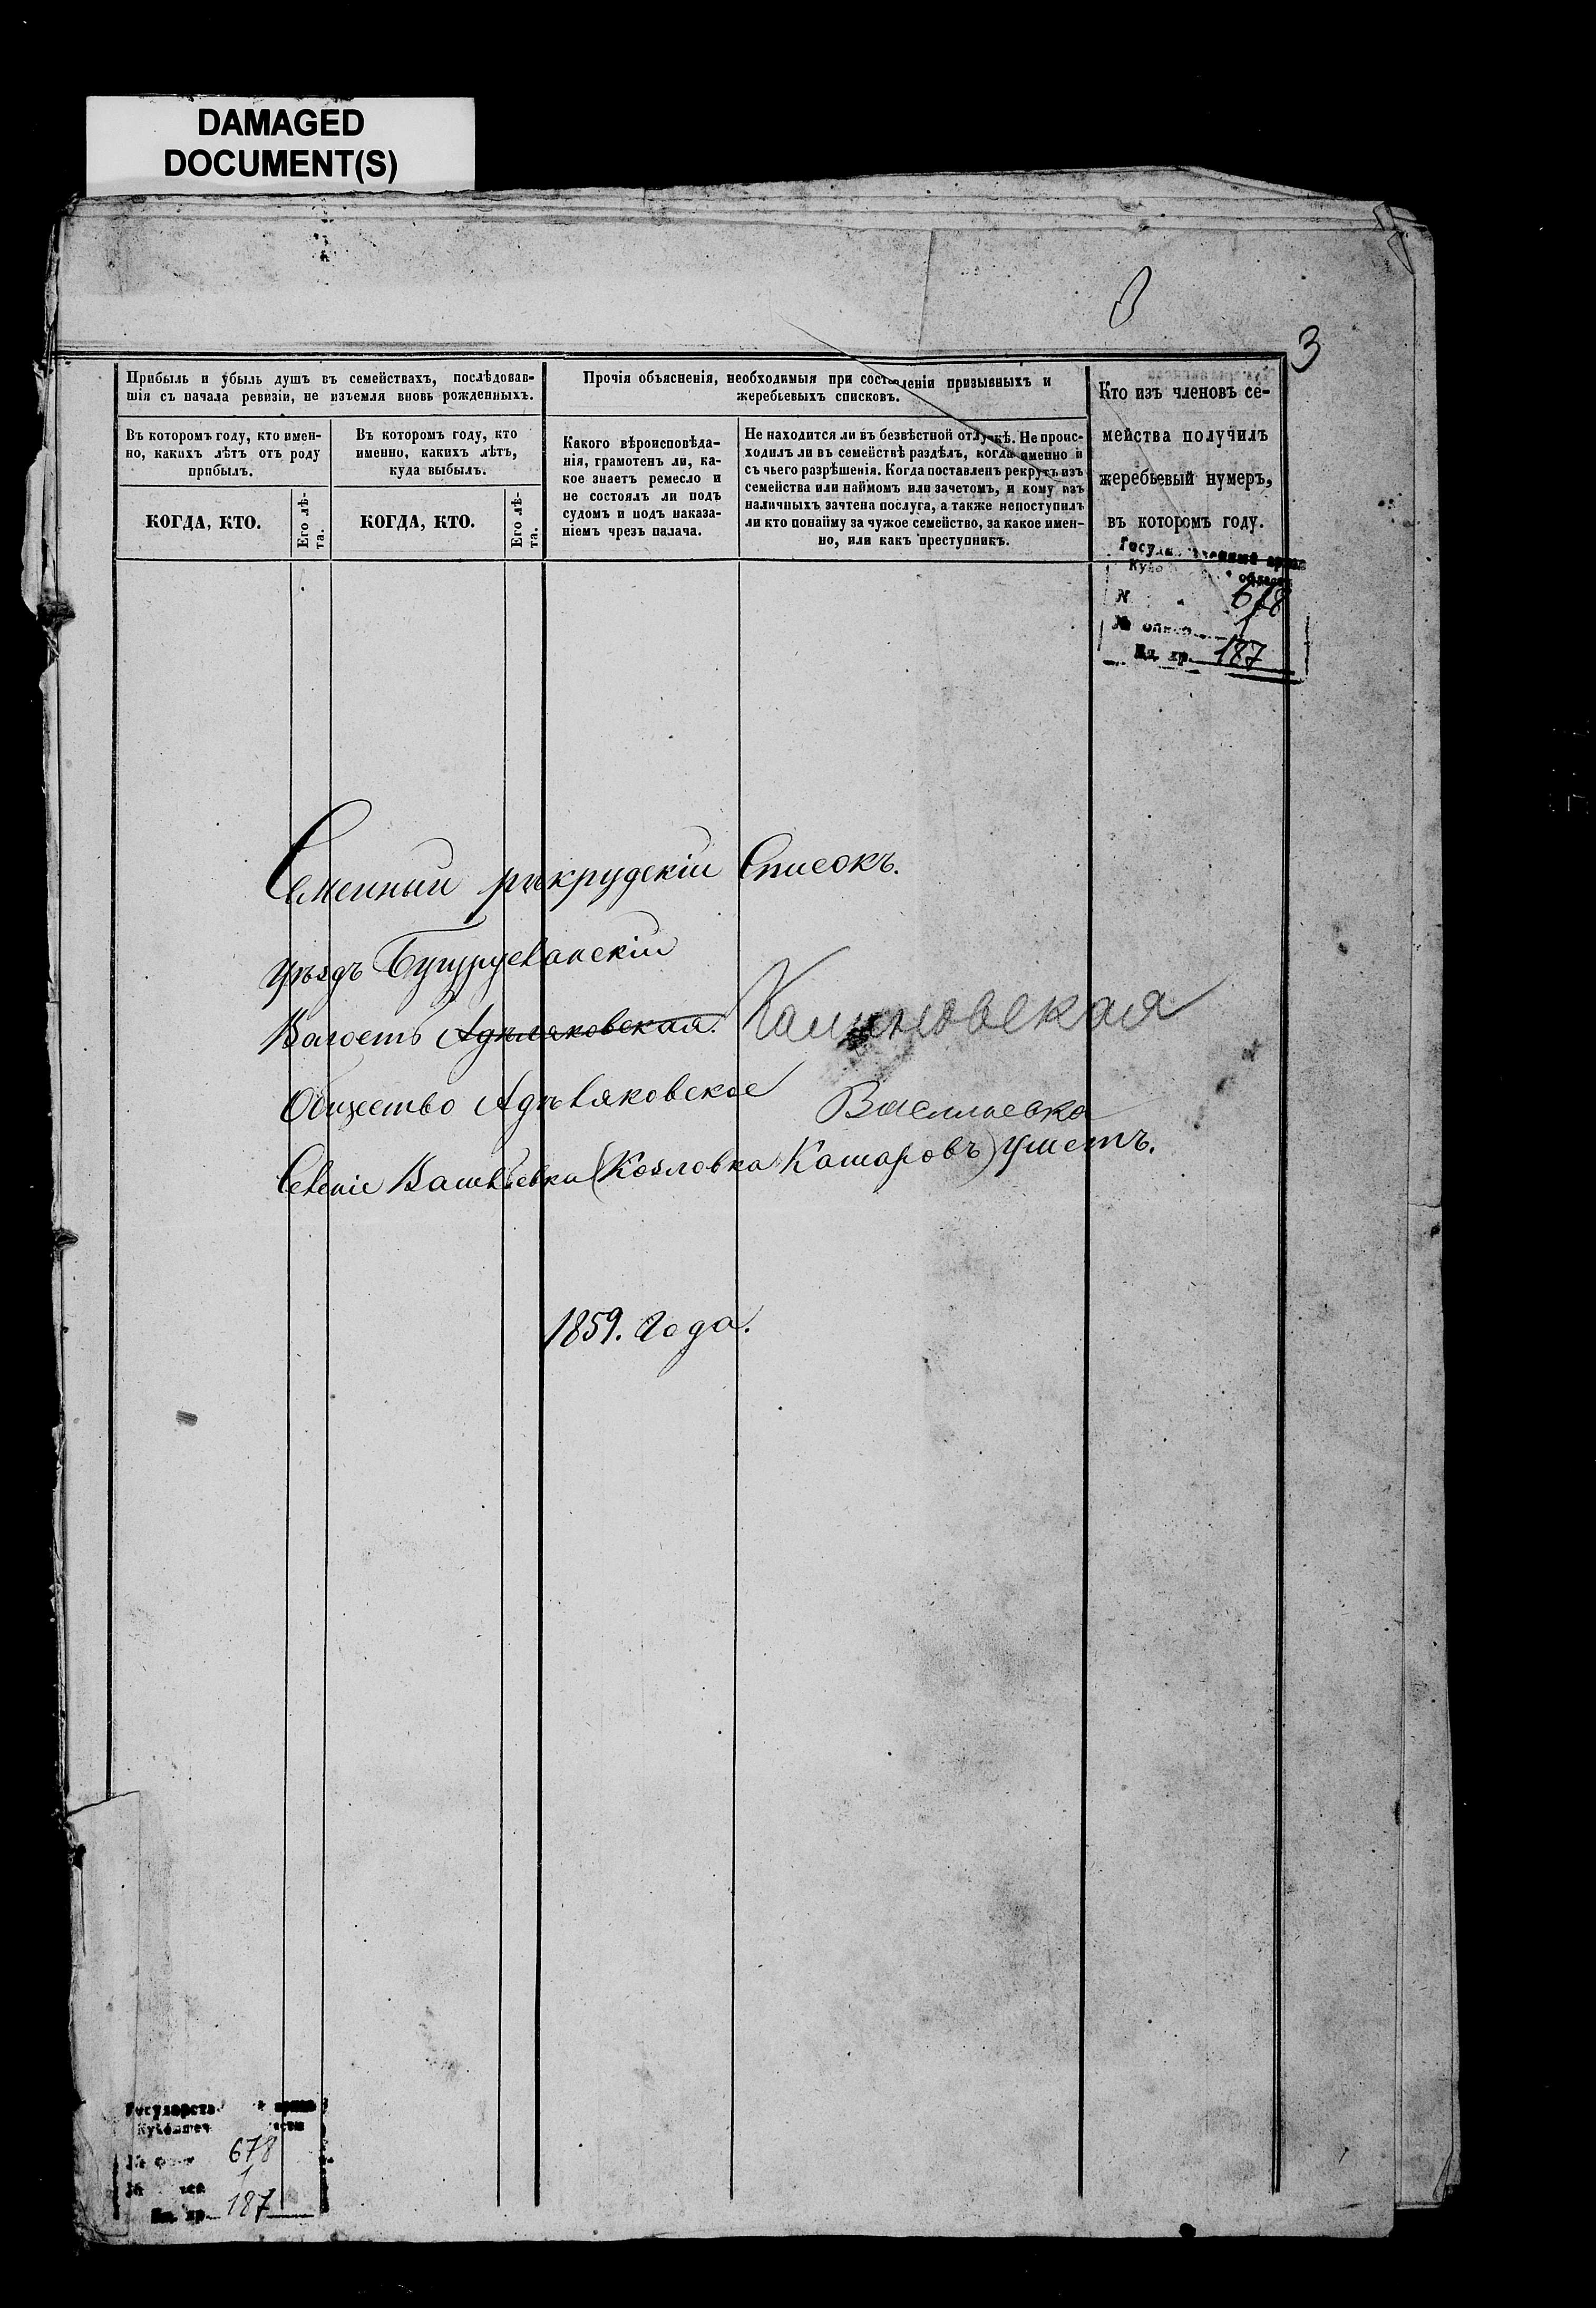 DAMAGED
DOCUMENT(S)
3
Прибыль и убыль душъ въ семействахъ, послѣдовав-
шія съ начала ревизіи, не изъемля вновь рожденныхъ.
Прочія объясненія, необходимыя при составленіи призывныхъ и
жеребьевыхъ списковъ.
Кто изъ членовъ се-
мейства получилъ
жеребьевый нумеръ,
въ которомъ году.
Въ которомъ году, кто имен-
но, какихъ лѣтъ отъ роду
прибылъ.
Въ которомъ году, кто
именно, какихъ лѣтъ,
куда выбылъ.
Какого вѣроисповѣда-
нія, грамотенъ ли, ка-
кое знаетъ ремесло и
не состоялъ ли подъ
судомъ и подъ наказа-
ніемъ чрезъ палача.
Не находится ли въ безвѣстной отлучкѣ. Не проис-
ходилъ ли въ семействѣ раздѣлъ, когда именно и
съ чьего разрѣшенія. Когда поставленъ рекрутъ изъ
семейства или наймомъ или зачетомъ, и кому изъ
наличныхъ зачтена послуга, а также непоступилъ
ли кто понайму за чужое семейство, за какое имен-
но, или какъ преступникъ.
КОГДА, КТО.
Его лѣ-
та.
КОГДА, КТО.
Его лѣ-
та.
678
1
187
Семейный рѣкрудскій Списокъ.
Уѣздъ Бугурусланскій
Волость Адѣляковская.
Общество Адѣляковское
Васильевка
Селеніе Васильевка (Козловка Кашаровъ) Уметъ.
1859. Года.
678
1
187